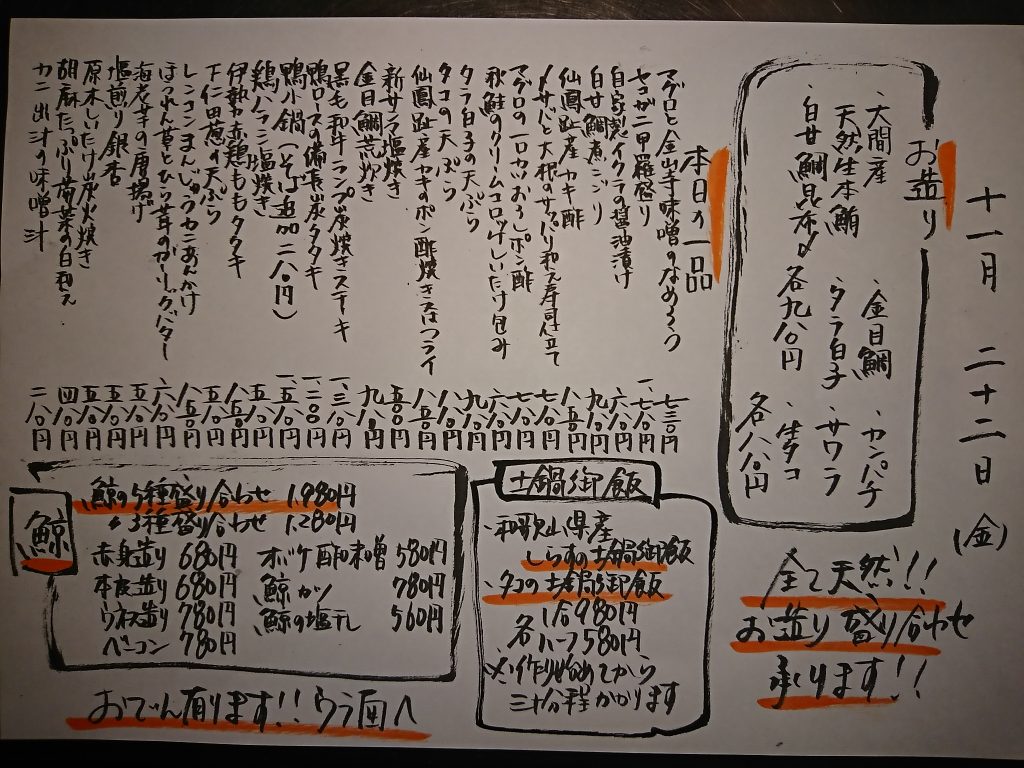 十一月 二十二日 (金)
お造り
・大間産
天然生本鮪
・白甘鯛昆布〆 各九八〇円
・金目鯛
・タラ白子
・カンパチ
・サワラ
・生タコ
各八八〇円
全て天然!!
お造り盛り合わせ
承ります!!
本日の一品
マグロと金山寺味噌のなめろう 七三〇円
セコガニ甲羅盛り 一、七八〇円
自家製イクラの醤油漬け 六八〇円
白甘鯛煮こごり
仙鳳趾産カキ酢
〆サバと大根のサッパリ和え寿司仕立て
マグロの一口カツおろしポン酢
秋鮭のクリームコロッケしいたけ包み
タラ白子の天ぷら
タコの天ぷら
仙鳳趾産カキのポン酢焼きさつフライ
新サンマ塩焼き
金目鯛荒炊き
黒毛和牛ランプ炭焼きステーキ
鴨ロースの備長炭タタキ
鴨小鍋(そば追加二八〇円)
鶏ハラミ塩焼き
伊勢赤鶏ももタタキ
下仁田葱の天ぷら
レンコンまんじゅうカニあんかけ
ほうれん草とひら茸のガーリックバター 六八〇円
海老芋の唐揚げ 五八〇円
塩煎り銀杏
原木しいたけ炭火焼き
胡麻たっぷり春菊の白和え 四八〇円
カニ出汁の味噌汁 二八〇円
土鍋御飯
・和歌山県産
しらすの土鍋御飯
・タコの土鍋御飯
各 1合980円
ハーフ580円
※作り始めてから
三十分程かかります
鯨
鯨の5種盛り合わせ 1,980円
〃 3種盛り合わせ 1,280円
赤身造り 680円 ボケ酢味噌 580円
本皮造り 680円 鯨カツ 780円
ウネ造り 780円 鯨の塩干し 560円
ベーコン 780円
おでん有ります!!ウラ面へ